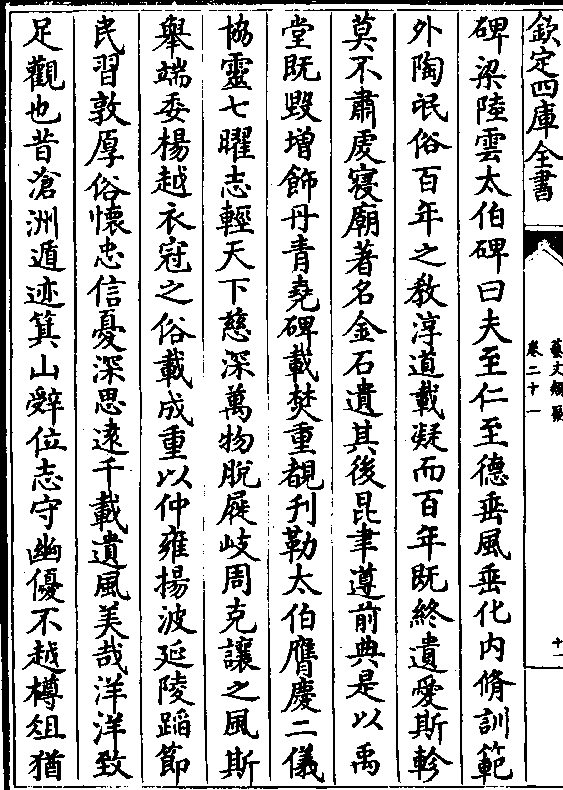 欽定四庫全書
藝文類聚
卷二十一
十一
碑梁陸雲太伯碑曰夫至仁至德垂風垂化内脩訓範
外陶氓俗百年之教淳道載凝而百年既終遺愛斯軫
莫不肅虔寢廟著名金石遺其後昆聿遵前典是以禹
堂既毀增飾丹青堯碑載焚重覩刋勒太伯膺慶二儀
協靈七曜志輕天下慈深萬物脱屣岐周克讓之風斯
舉端委楊越衣冠之俗載成重以仲雍揚波延陵蹈節
民習敦厚俗懐忠信憂深思逺千載遺風美哉洋洋致
足觀也昔滄洲遁迹箕山辭位志守幽優不越樽俎猶